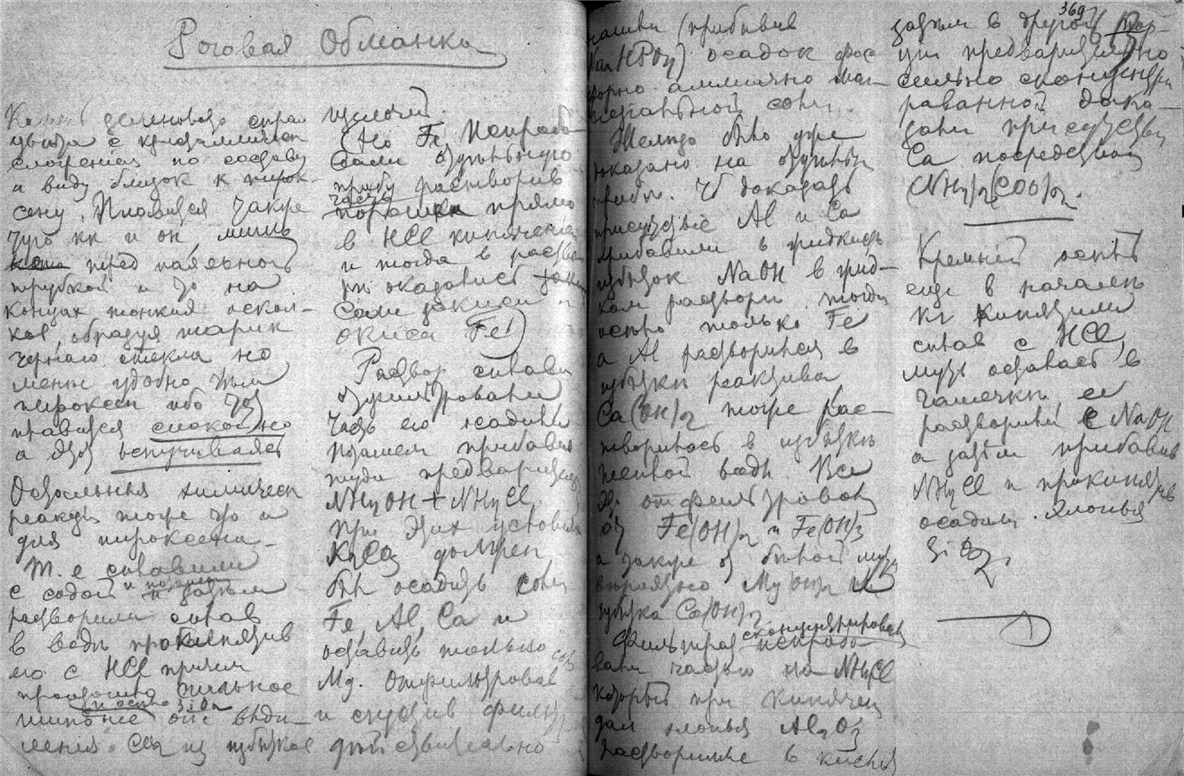 Роговая Обманка
Камень зеленоваго
сложения по составу
и виду близок к пирок-
сену. Плавился также
туго как и он лишь
перед паяльной
трубкой и то на
концах тонких оскол-
ков, образуя шарик
чернаго стекла но
менее удобно чем
пироксен ибо тот
плавился спокойно
а этот вспучивался
Остальныя химическ
реакции тоже что и
для пироксена
Т. е сплавили
с содой и затем
растворили сплав
в воде прокипятив
его с HCl причем
произошло сильное
шипение от выде-
ления CO2 из избытков
щелочей.
(На Fe
отдельную
пробу растворив
порошка прямо
в HCl кипячением
и тогда в раство
ре оказались
Соли закиси и
окиси Fe)
Раствор сплава
отфильтровали
часть его осадили
прибавив
туда предварительно
NH4OH + NH4Cl.
При этих условиях
должен
был осадить соли
Fe, Al, Ca и
оставить только
Mg. Отфильтровав
и сгустив фильтр
действительно
чашки (прибавив
Na2HPO4) осадок фос
форно аммиачно маг-
соли.
Железо было уже
доказано на отдельн
пробе. Чтоб доказать
присутствие Al и Ca
прибавили в жидкость
избыток NaOH в жид-
ком растворе тогда
осело только Fe
а Al растворился в
избытке реактива
Ca(OH)2 тоже рас-
творилось в избытке
воды. Все
отфильтровали
от Fe(OH)2 и Fe(OH)3
а также от бывшей тут
Mg(OH)2 из
избытка Ca(OH)2
Фильтрат сконцентрировали
частью на NH4Cl
который при кипячен
дал хлопья Al2O3
растворимые в кислот
369
затем в другой пор-
ции предварительно
сильно сконцентри
рованной дока-
зали присутствие
Ca посредством
(NH4)2(COO)2.
Кремний осел
еще в начале
когда кипятили
сплав с HCl,
муть оставалась в
чашечке ее
растворили с NaOH
а затем прибавив
NH4Cl и прокипятив
осадили хлопья
SiO2.